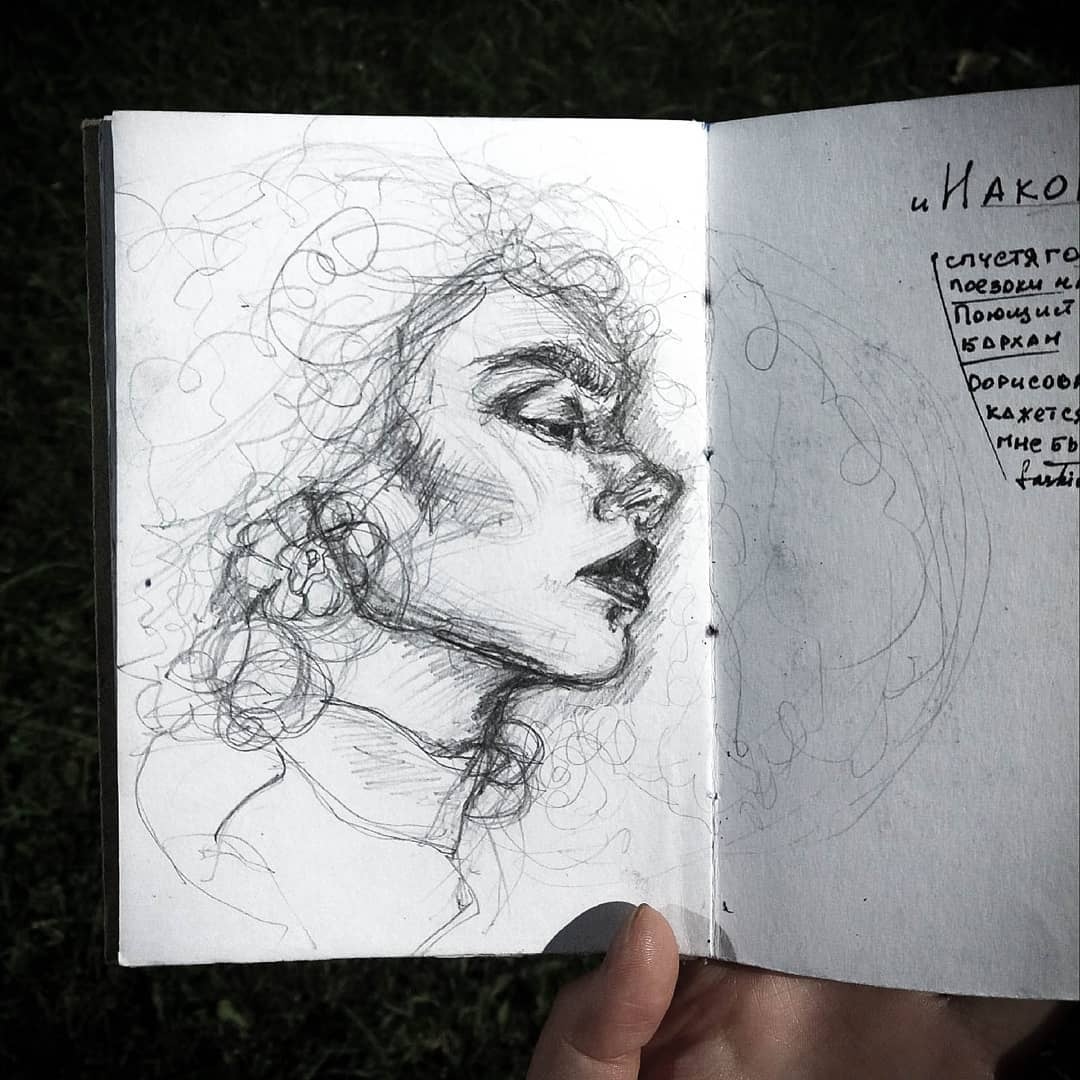 и „НАКО
спустя го
поездки н
Поющий
БАРХАН
дорисова
кажется
мне бы
fashi